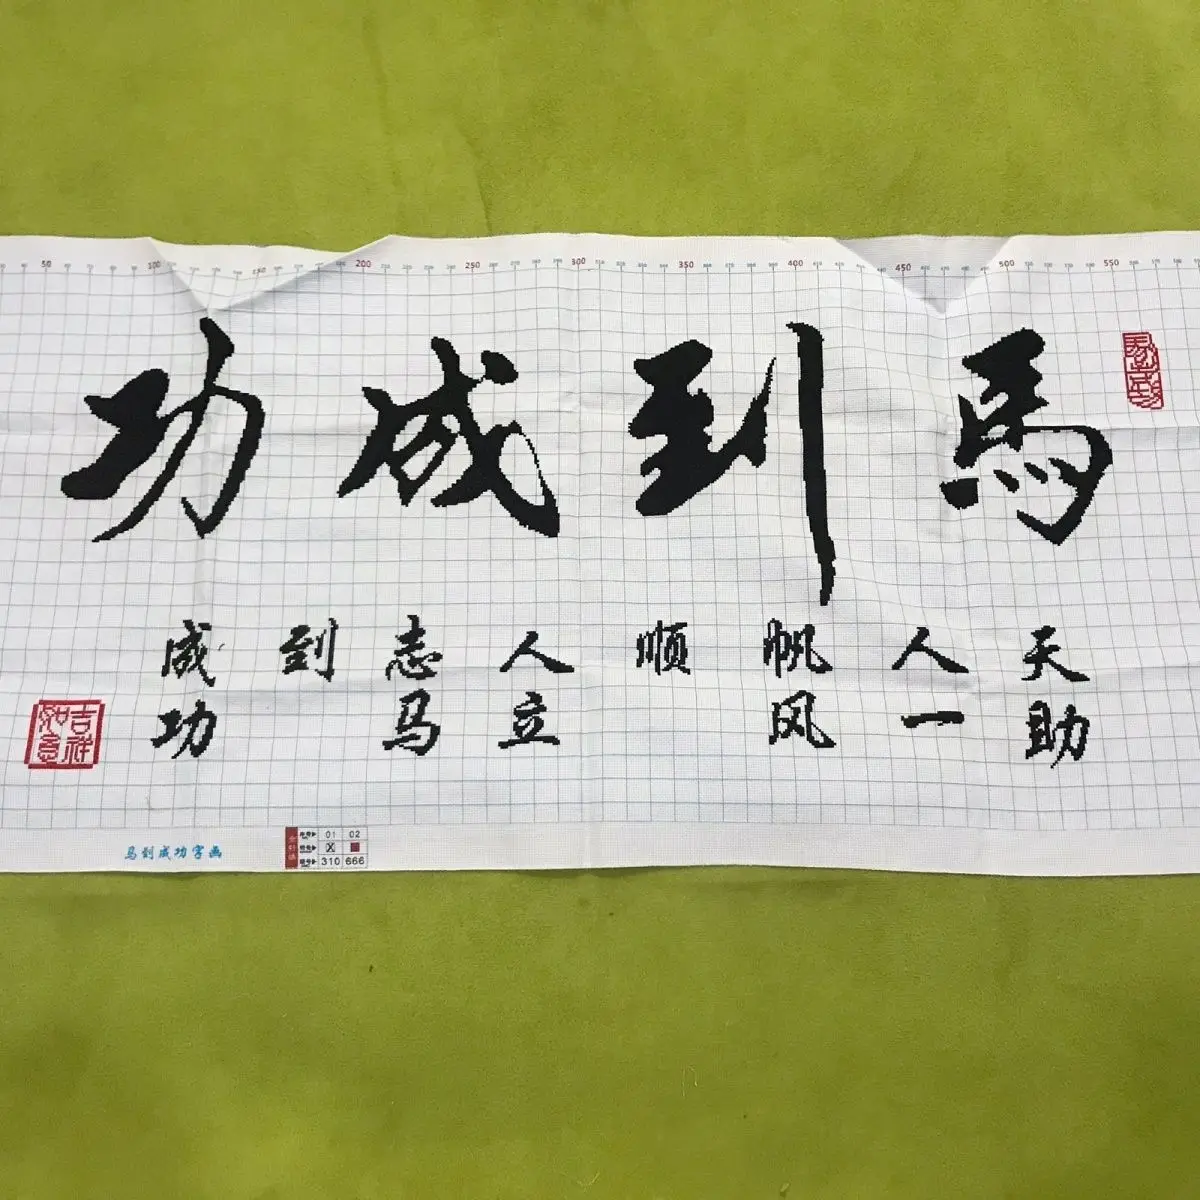 50 100 200 250 300 350 400 450 500 550
馬到成功
天助
人一
帆风
顺
人立
志马
到
成功
吉祥如意
马到成功字画
01 02
X
310 666